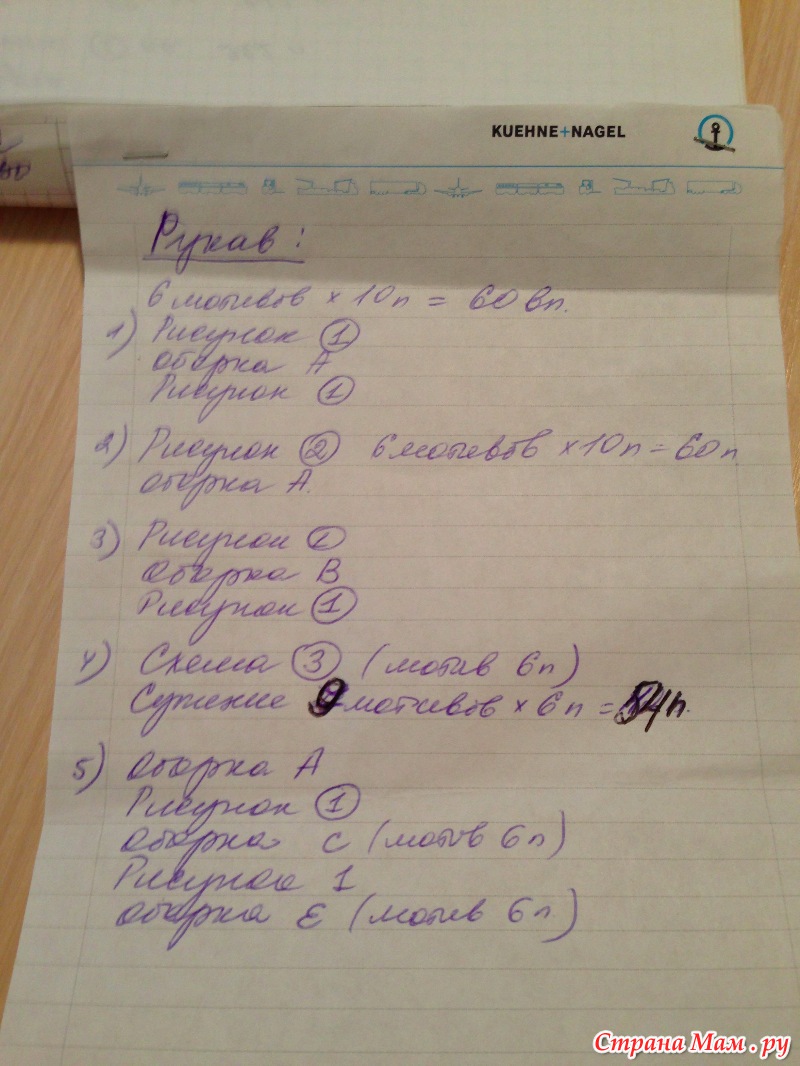 KUEHNE+NAGEL
Рукав:
6 мотивов х 10п = 60 вп.
1) Рисунок 1
оборка А
Рисунок 1
2) Рисунок 2 6 мотивов х 10п = 60п
оборка А.
3) Рисунок 1
оборка В
Рисунок 1
4) Схема 3 (мотив 6п)
Сужение 9 мотивов х 6п = 54п.
5) оборка А
Рисунок 1
оборка С (мотив 6п)
Рисунок 1
оборка Е (мотив 6п)
Страна Мам.ру